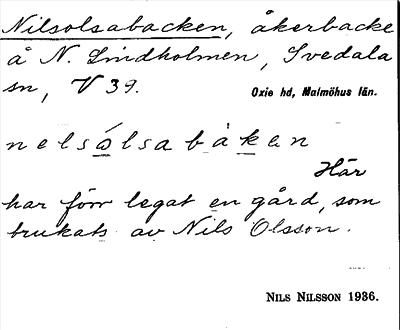 Nilsolsabacken, åkerbacke
å N. Lindholmen, Svedala
sn, V 39. Oxie hd, Malmöhus län.
nelsólsabåkan
Här
har förr legat en gård, som
brukats av Nils Olsson.
NILS NILSSON 1936.